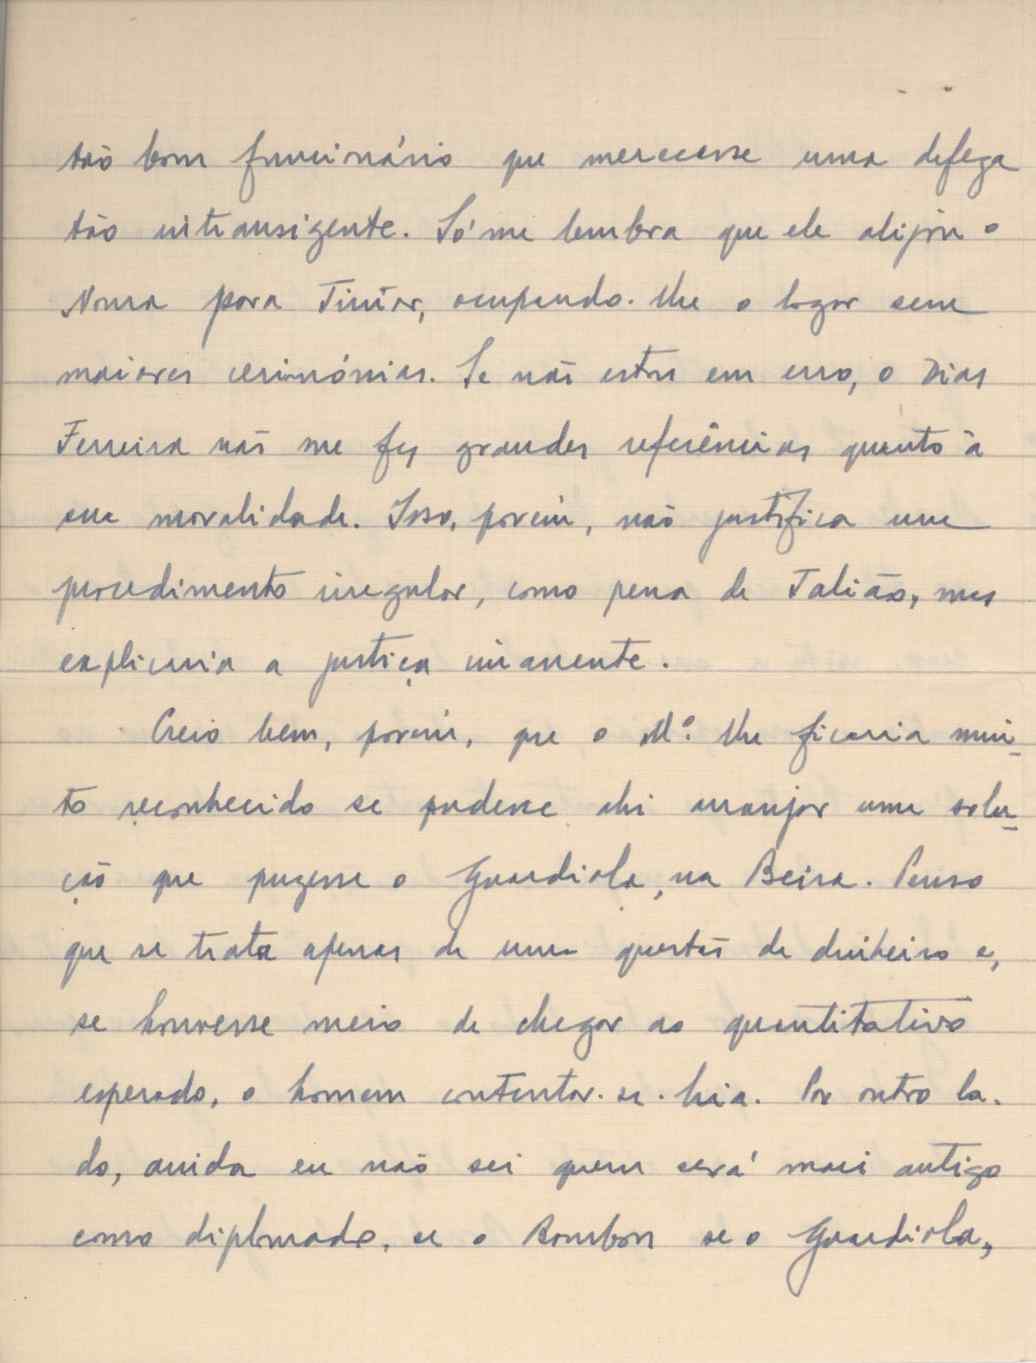 tão bom funcionário que merecesse uma defeza
tão intransigente. Só me lembra que ele alijou o
Moura para Timor, ocupando-lhe o logar sem
maiores cerimónias. Se não estou em erro, o Dias
Ferreira não me fez grandes referências quanto à
sua moralidade. Isso, porém, não justifica um
procedimento irregular, como pena de Talião, mas
explicaria a justiça imanente.
Creio bem, porém, que o M.º lhe ficaria mui-
to reconhecido se pudesse ahi arranjar uma solu-
ção que puzesse o Guardiola, na Beira. Penso
que se trata apenas de uma questão de dinheiro e,
se houvesse meio de chegar ao quantitativo
esperado, o homem contentar-se-hia. Por outro la-
do, ainda eu não sei quem será mais antigo
como diplomado, se o Bourbon se o Guardiola,